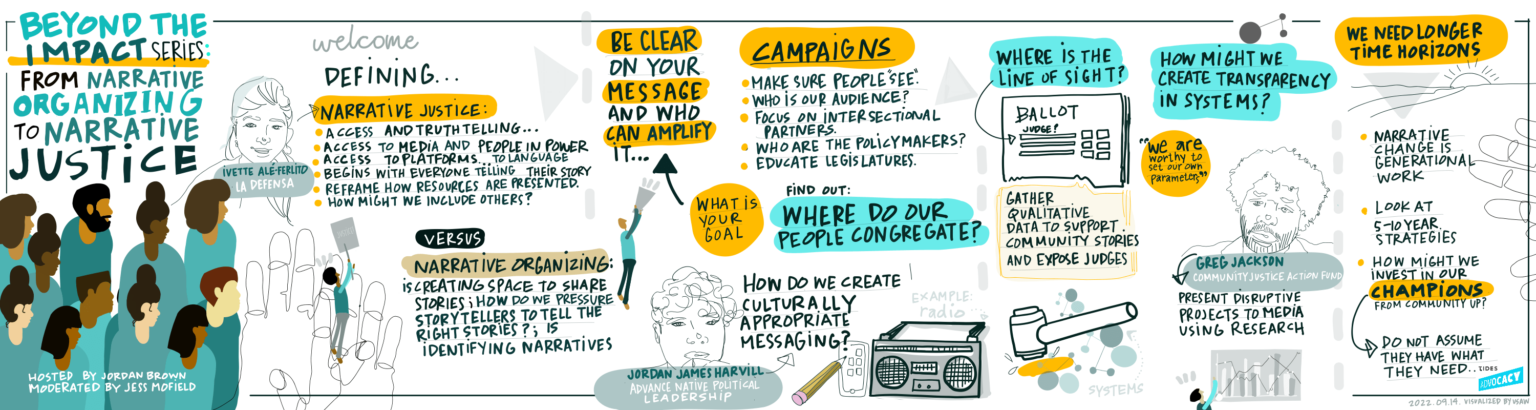 BEYOND THE
IMPACT SERIES:
FROM NARRATIVE
ORGANIZING
TO NARRATIVE
JUSTICE
HOSTED BY JORDAN BROWN
MODERATED BY JESS MOFIELD
IVETTE ALÉ-FERLITO
LA DEFENSA
welcome
DEFINING...
NARRATIVE JUSTICE:
ACCESS AND TRUTH TELLING...
ACCESS TO MEDIA AND PEOPLE IN POWER
ACCESS TO PLATFORMS... TO LANGUAGE
BEGINS WITH EVERYONE TELLING THEIR STORY
REFRAME HOW RESOURCES ARE PRESENTED.
HOW MIGHT WE INCLUDE OTHERS?
VERSUS
NARRATIVE ORGANIZING:
IS CREATING SPACE TO SHARE
STORIES; HOW DO WE PRESSURE
STORYTELLERS TO TELL THE
RIGHT STORIES?; IS
IDENTIFYING NARRATIVES
BE CLEAR
ON YOUR
MESSAGE
AND WHO
CAN AMPLIFY
IT...
WHAT IS
YOUR
GOAL
JORDAN JAMES HARVILL
ADVANCE NATIVE POLITICAL
LEADERSHIP
CAMPAIGNS
MAKE SURE PEOPLE "SEE".
WHO IS OUR AUDIENCE?
FOCUS ON INTERSECTIONAL
PARTNERS.
WHO ARE THE POLICYMAKERS?
EDUCATE LEGISLATURES.
FIND OUT:
WHERE DO OUR
PEOPLE CONGREGATE?
HOW DO WE CREATE
CULTURALLY
APPROPRIATE
MESSAGING?
EXAMPLE:
radio
WHERE IS THE
LINE OF SIGHT?
BALLOT
JUDGE?
GATHER
QUALITATIVE
DATA TO SUPPORT
COMMUNITY STORIES
AND EXPOSE JUDGES
SYSTEMS
HOW MIGHT WE
CREATE TRANSPARENCY
IN SYSTEMS?
"we are
worthy to
set our own
parameters"
GREG JACKSON
COMMUNITY JUSTICE ACTION FUND
PRESENT DISRUPTIVE
PROJECTS TO MEDIA
USING RESEARCH
WE NEED LONGER
TIME HORIZONS
NARRATIVE
CHANGE IS
GENERATIONAL
WORK
LOOK AT
5-10 YEAR
STRATEGIES
HOW MIGHT WE
INVEST IN OUR
CHAMPIONS
FROM COMMUNITY UP?
DO NOT ASSUME
THEY HAVE WHAT
THEY NEED..
TIDES
ADVOCACY
2022.09.14. VISUALIZED BY VSAW